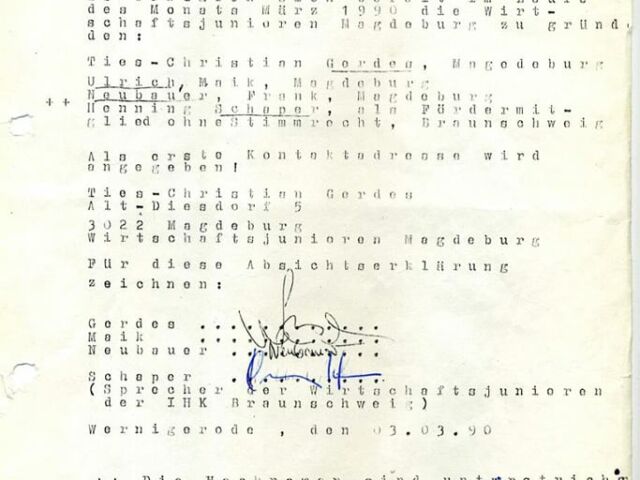 des Monats März 1990 die Wirt-
schaftsjunioren Magdeburg zu gründ
den:
Ties-Christian Gerdes, Magedeburg
Ulrich, Maik, Magdeburg
Neubauer, Frank, Megdeburg
++ Henning Schaper, als Fördermit-
glied ohneStimmrecht, Braunschweig
Als erste Kontaktadresse wird
angegeben!
Ties-Christian Gerdes
Alt-Diesdorf 5
3022 Magdeburg
Wirtschaftsjunioren Magdeburg
Für diese Absichtserklärung
zeichnen:
Gerdes ...............
Maik ...............
Neubauer ...............
Neubauer
Schaper ...............
(Sprecher der Wirtschaftsjunioren
der IHK Braunschweig)
Wernigerode , den 03.03.90
++ Die Nachnamen sind unterstrichen